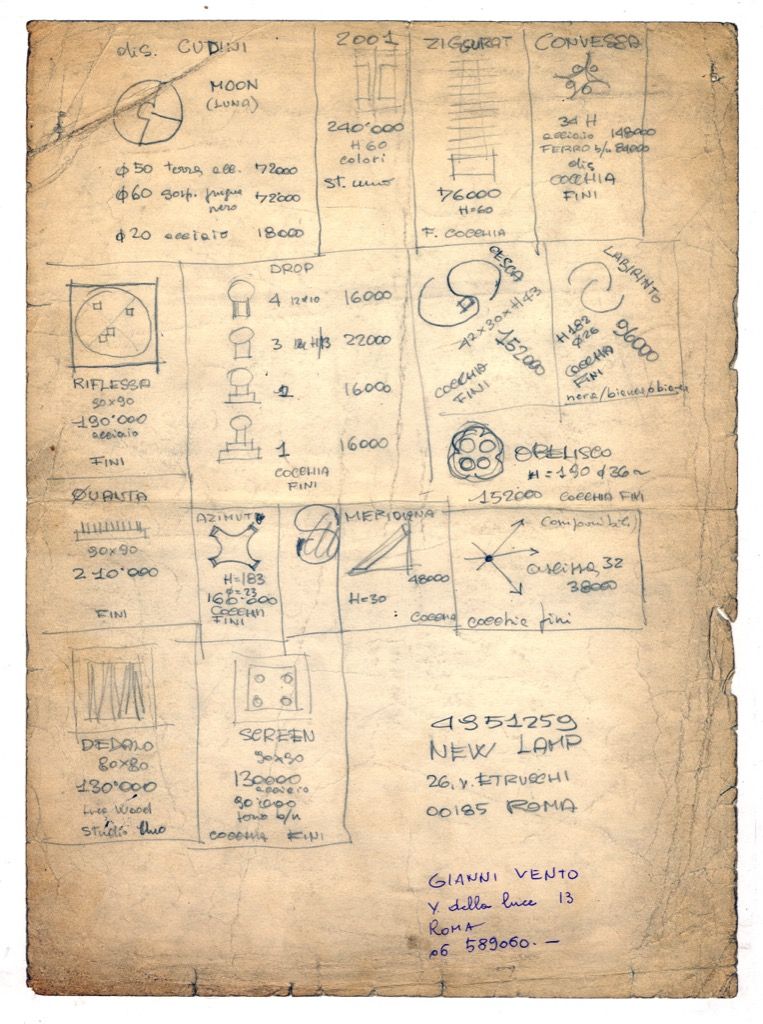 dis. CUDINI
MOON
(LUNA)
φ50 terra acc. 72000
φ60 sosp. nero 72000
φ20 acciaio 18000
2001
240'000
H 60
colori
St. uno
ZIGGURAT
76000
H=60
F. COCCHIA
CONVESSA
34 H
acciaio 148000
FERRO b/n 84000
dis
COCCHIA
FINI
RIFLESSA
90x90
190'000
acciaio
FINI
DROP
4 12x10 16000
3 22000
2 16000
1 16000
COCCHIA
FINI
PESCA
42x30xH43
152000
COCCHIA
FINI
LABIRINTO
H182
φ26
96000
COCCHIA
FINI
nera/bianca
OBELISCO
H=190 φ36
152000 COCCHIA FINI
QUANTA
90x90
210'000
FINI
AZIMUT
H=183
φ=23
160'000
COCCHIA
FINI
MERIDIANA
48000
H=30
COCCHIA
componibili
32
38000
cocchia fini
DEDALO
80x80
130'000
Luca Wood
Studio Uno
SCREEN
90x90
130000
acciaio
90'000
tono b/n
COCCHIA FINI
4951259
NEW LAMP
26, v. ETRUSCHI
00185 ROMA
GIANNI VENTO
V. della luce 13
ROMA
06 589060.—